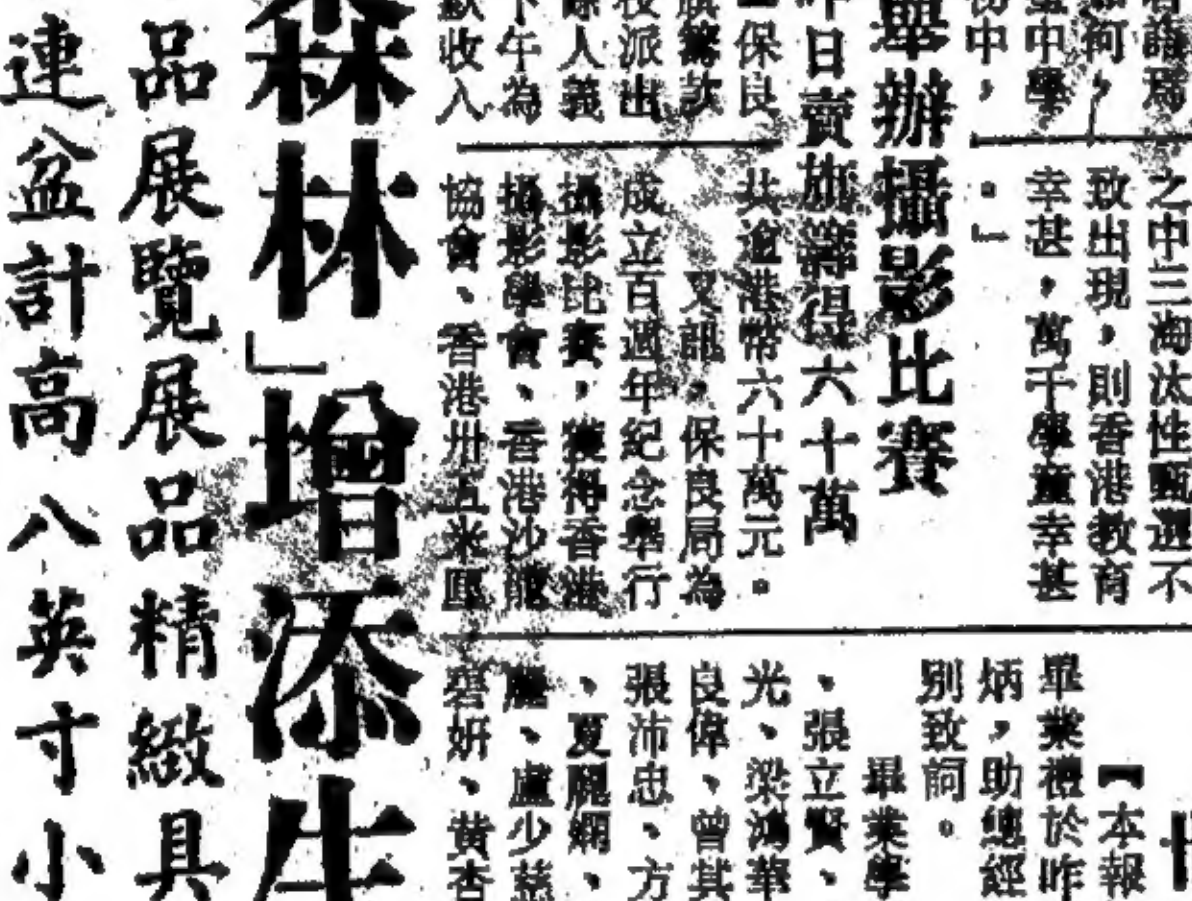 者論為
之中三淘汰性甄選不
如何，
致出現，則香港教育
中學
幸甚，萬千學童幸甚
初中，
。」
舉辦攝影比賽
昨日賣旗籌得六十萬
保良
旗籌款
校派出
餘人義
下午為
款收入
共逾港幣六十萬元。
又訊，保良局為
成立百週年紀念舉行
攝影比賽，獲得香港
攝影學會、香港沙龍
協會、香港卅五米厘
【本報
畢業禮於昨
炳，助總經
別致詞。
畢業學
、張立賢、
光、梁鴻華
良偉、曾其
張沛忠、方
、夏麗嫻、
、盧少慈
碧妍、黃杏
森林」增添生
品展覽展品精緻具
連盆計高八英寸小